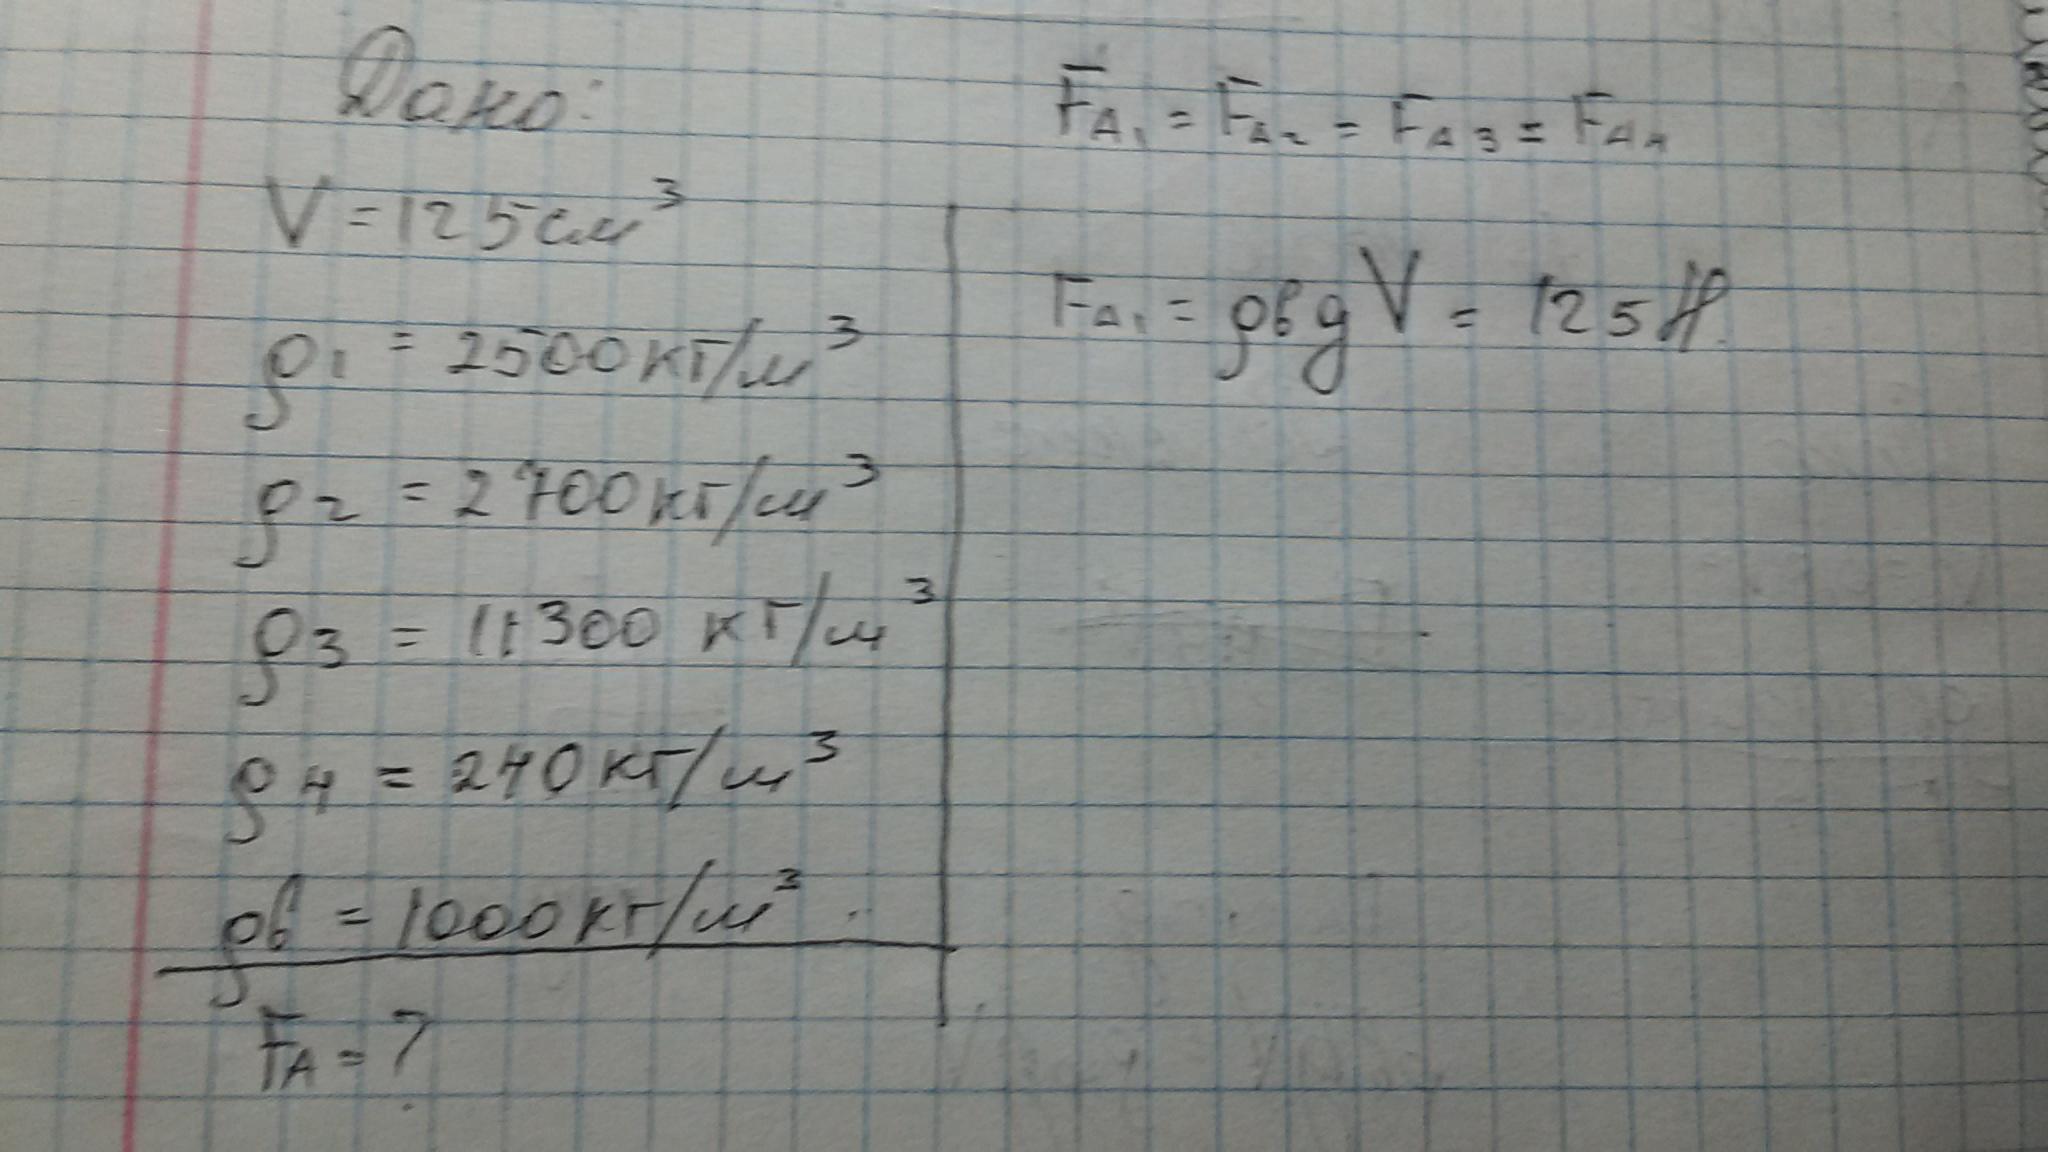 Дано:
V = 125 см³
ρ₁ = 2500 кг/м³
ρ₂ = 2700 кг/м³
ρ₃ = 11300 кг/м³
ρ₄ = 240 кг/м³
ρв = 1000 кг/м³
FА = ?
FА₁ = FА₂ = FА₃ = FА₄
FА₁ = ρв g V = 125 Н.